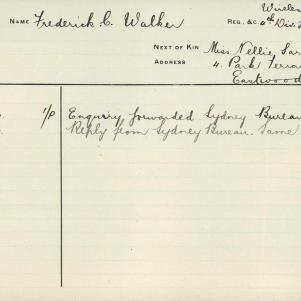 Wirele
NAME Frederick. C. Walker REG. &C. 4th Div.
NEXT OF KIN Miss Nellie
ADDRESS 4. Park Terra
Eastwood
1/8 Enquiry forwarded Sydney Bureau
Reply from Sydney Bureau. Same